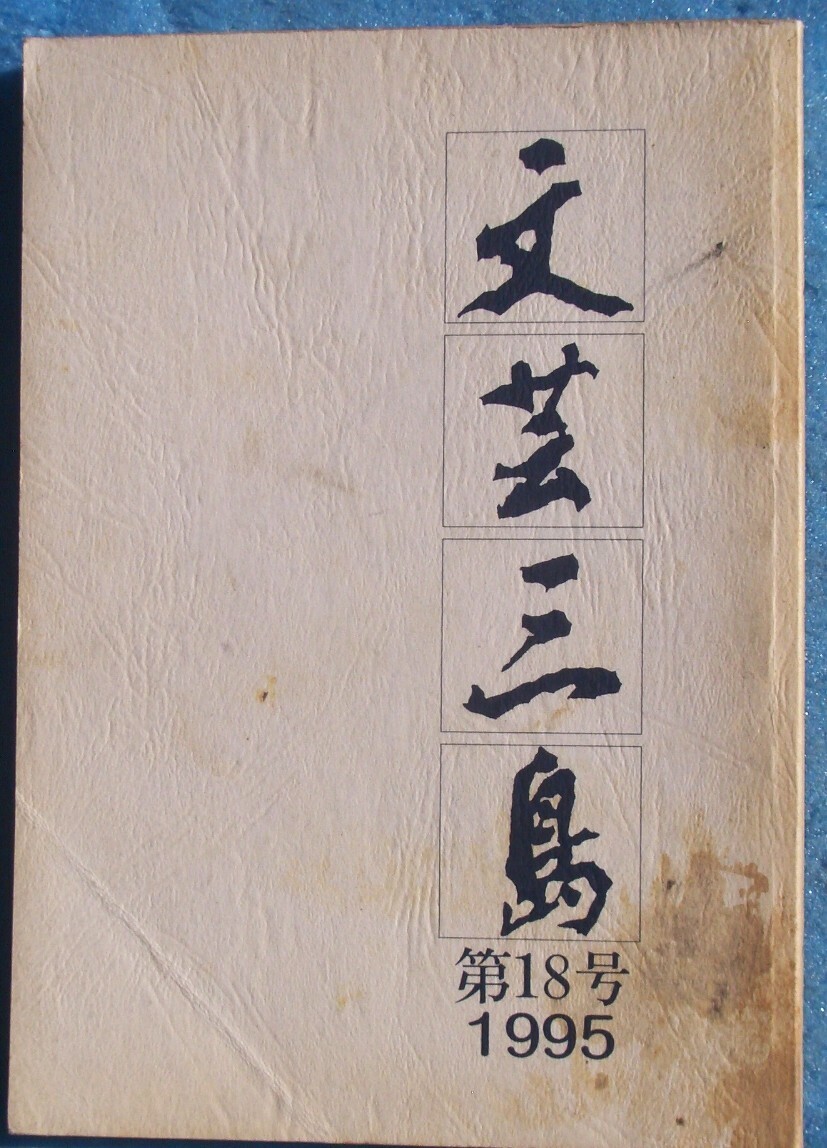 文芸三島
第18号
1995